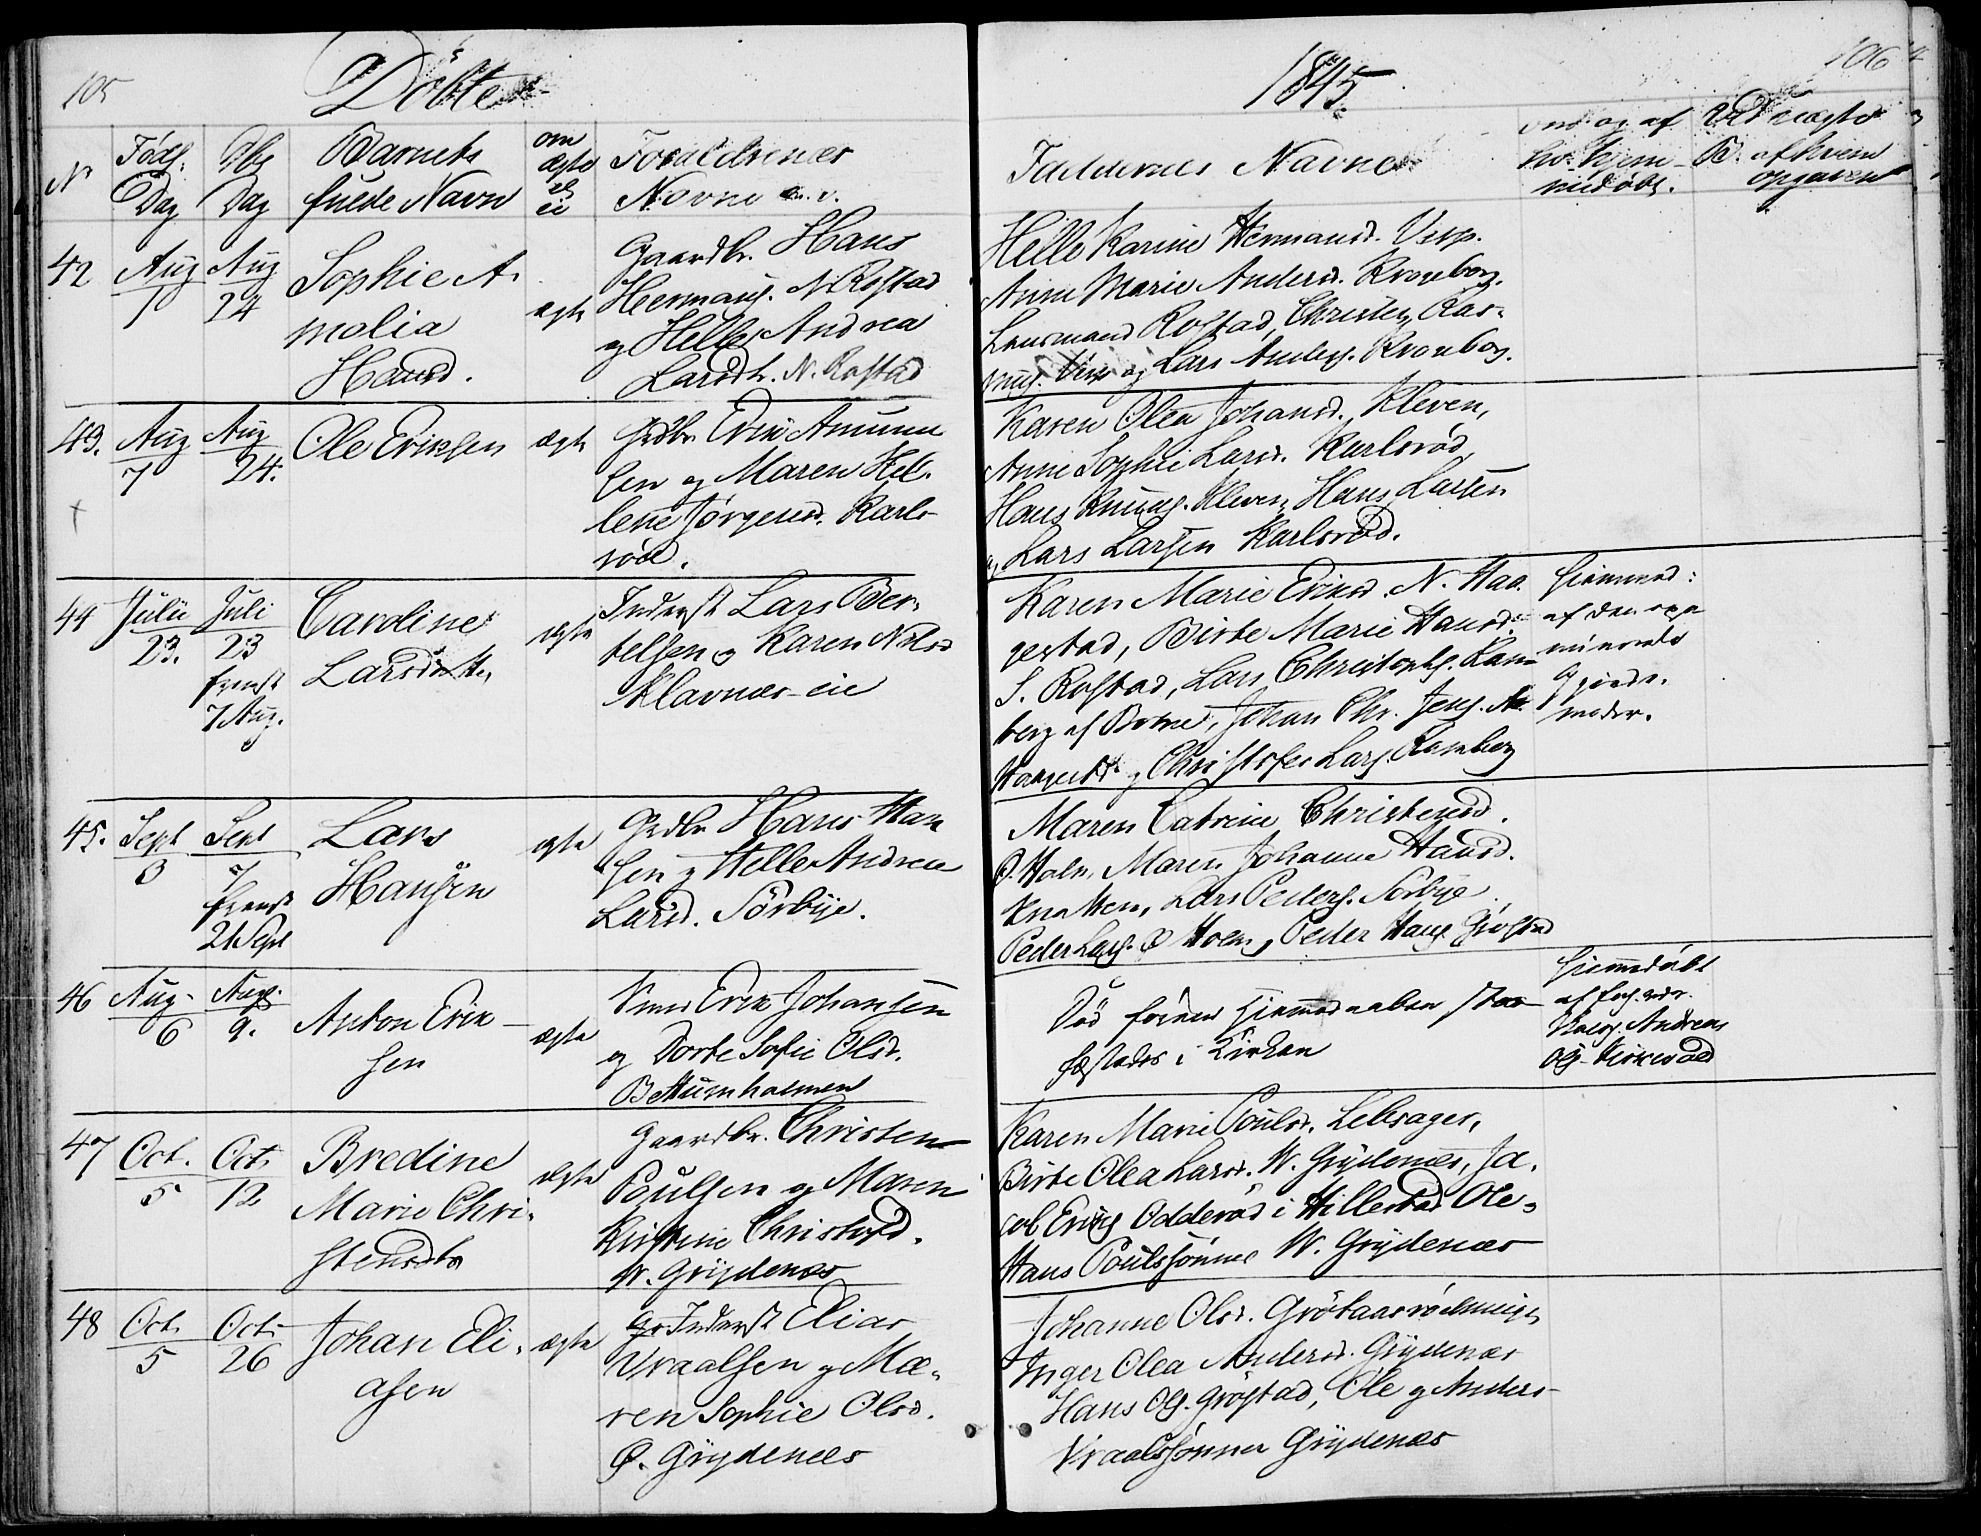 105
Döbte
1845
106
No
Föds.
Dag
Dbs
Dag
Barnets
fulde Navn
om
ægte
el
ei
Forældrenes
Navne m. v.
Faddernes Navne
om og af
hv. hjem-
medöbt.
Ved uægte
B. af hvem
opgaven
42
Aug
1
Aug
24
Sophie A-
malia
Hansd.
ægte
Gaardbr. Hans
Hermans. N. Rostad
og Helle Andrea
Larsdtr. N. Rostad
Helle Karine Hermansd. Vesp.
Anne Marie Andersd. Kronborg.
Lensmand Rostad, Christen Ras-
mus. og Lars Anders. Kronborg.
43.
Aug
7
Aug
24.
Ole Eriksen
ægte
Grdbr. Erik Amund
sen og Maren Hel-
lene Jörgensd. Karls-
röd.
Karen Olea Johansd. Kleven,
Anne Sophie Larsd. Karlsröd,
Hans Knuds. Kleven, Hans Larsen
og Lars Larsen Karlsröd.
44
Julii
23.
Juli
23
fremst
7 Aug.
Caroline
Larsdtr.
ægte
Inderst Lars Ber-
telsen og Karen Nilsd
Klavnes-eie
Karen Marie Eriksd. N. Haa-
gestad, Birte Marie Hansd.
S. Rostad, Lars Christophs. Ram-
berg af Botne, Johan Chr. Jens.
og Christofer Lars. Ramberg
hjemmed:
af den exa
minerede
Gjorde-
moder.
45.
Sept
3
Sept
7
fremst
21 Sept
Lars
Hansen
ægte
Grdbr Hans Han
sen og Helle Andrea
Larsd. Sörbye.
Maren Catrine Christensd.
Ö. Holm, Maren Johanne Hansd.
Knatten, Lars Peders. Sörbye
Peder Lars. Ö Holm, Peder Hans. Gröstad
46
Aug.
6
Aug.
9.
Anton Erik-
sen
ægte
Erik Johansen
og Dorte Sofie Olsd.
Död förend Hjemmedaaben stad-
fæstedes i Kirken
hjemmedöbt
af
Andreas
Ols.
47
Oct.
5
Oct.
12
Bredine
Marie Chri-
stensdtr
ægte
Gaardbr. Christen
Poulsen og Maren
Kirstine Christofd.
W. Grydenæs
Karen Marie Poulsd. Lelsager,
Birte Olea Larsd. W. Grydenæs, Ja-
cob Eriks Odderöd i Hillestad Ole og
Hans Poulssönner W. Grydenæs
48
Oct.
5
Oct.
26
Johan Eli-
asen
ægte
Inderst Elias
Vraalsen og Ma-
ren Sophie Olsd.
Ö. Grydenæs
Johanne Olsd. Grötaasrödningen
Inger Olea Andersd. Grydenæs
Hans Ols. Gröstad, Ole og Anders
Vraalssönner Grydenæs